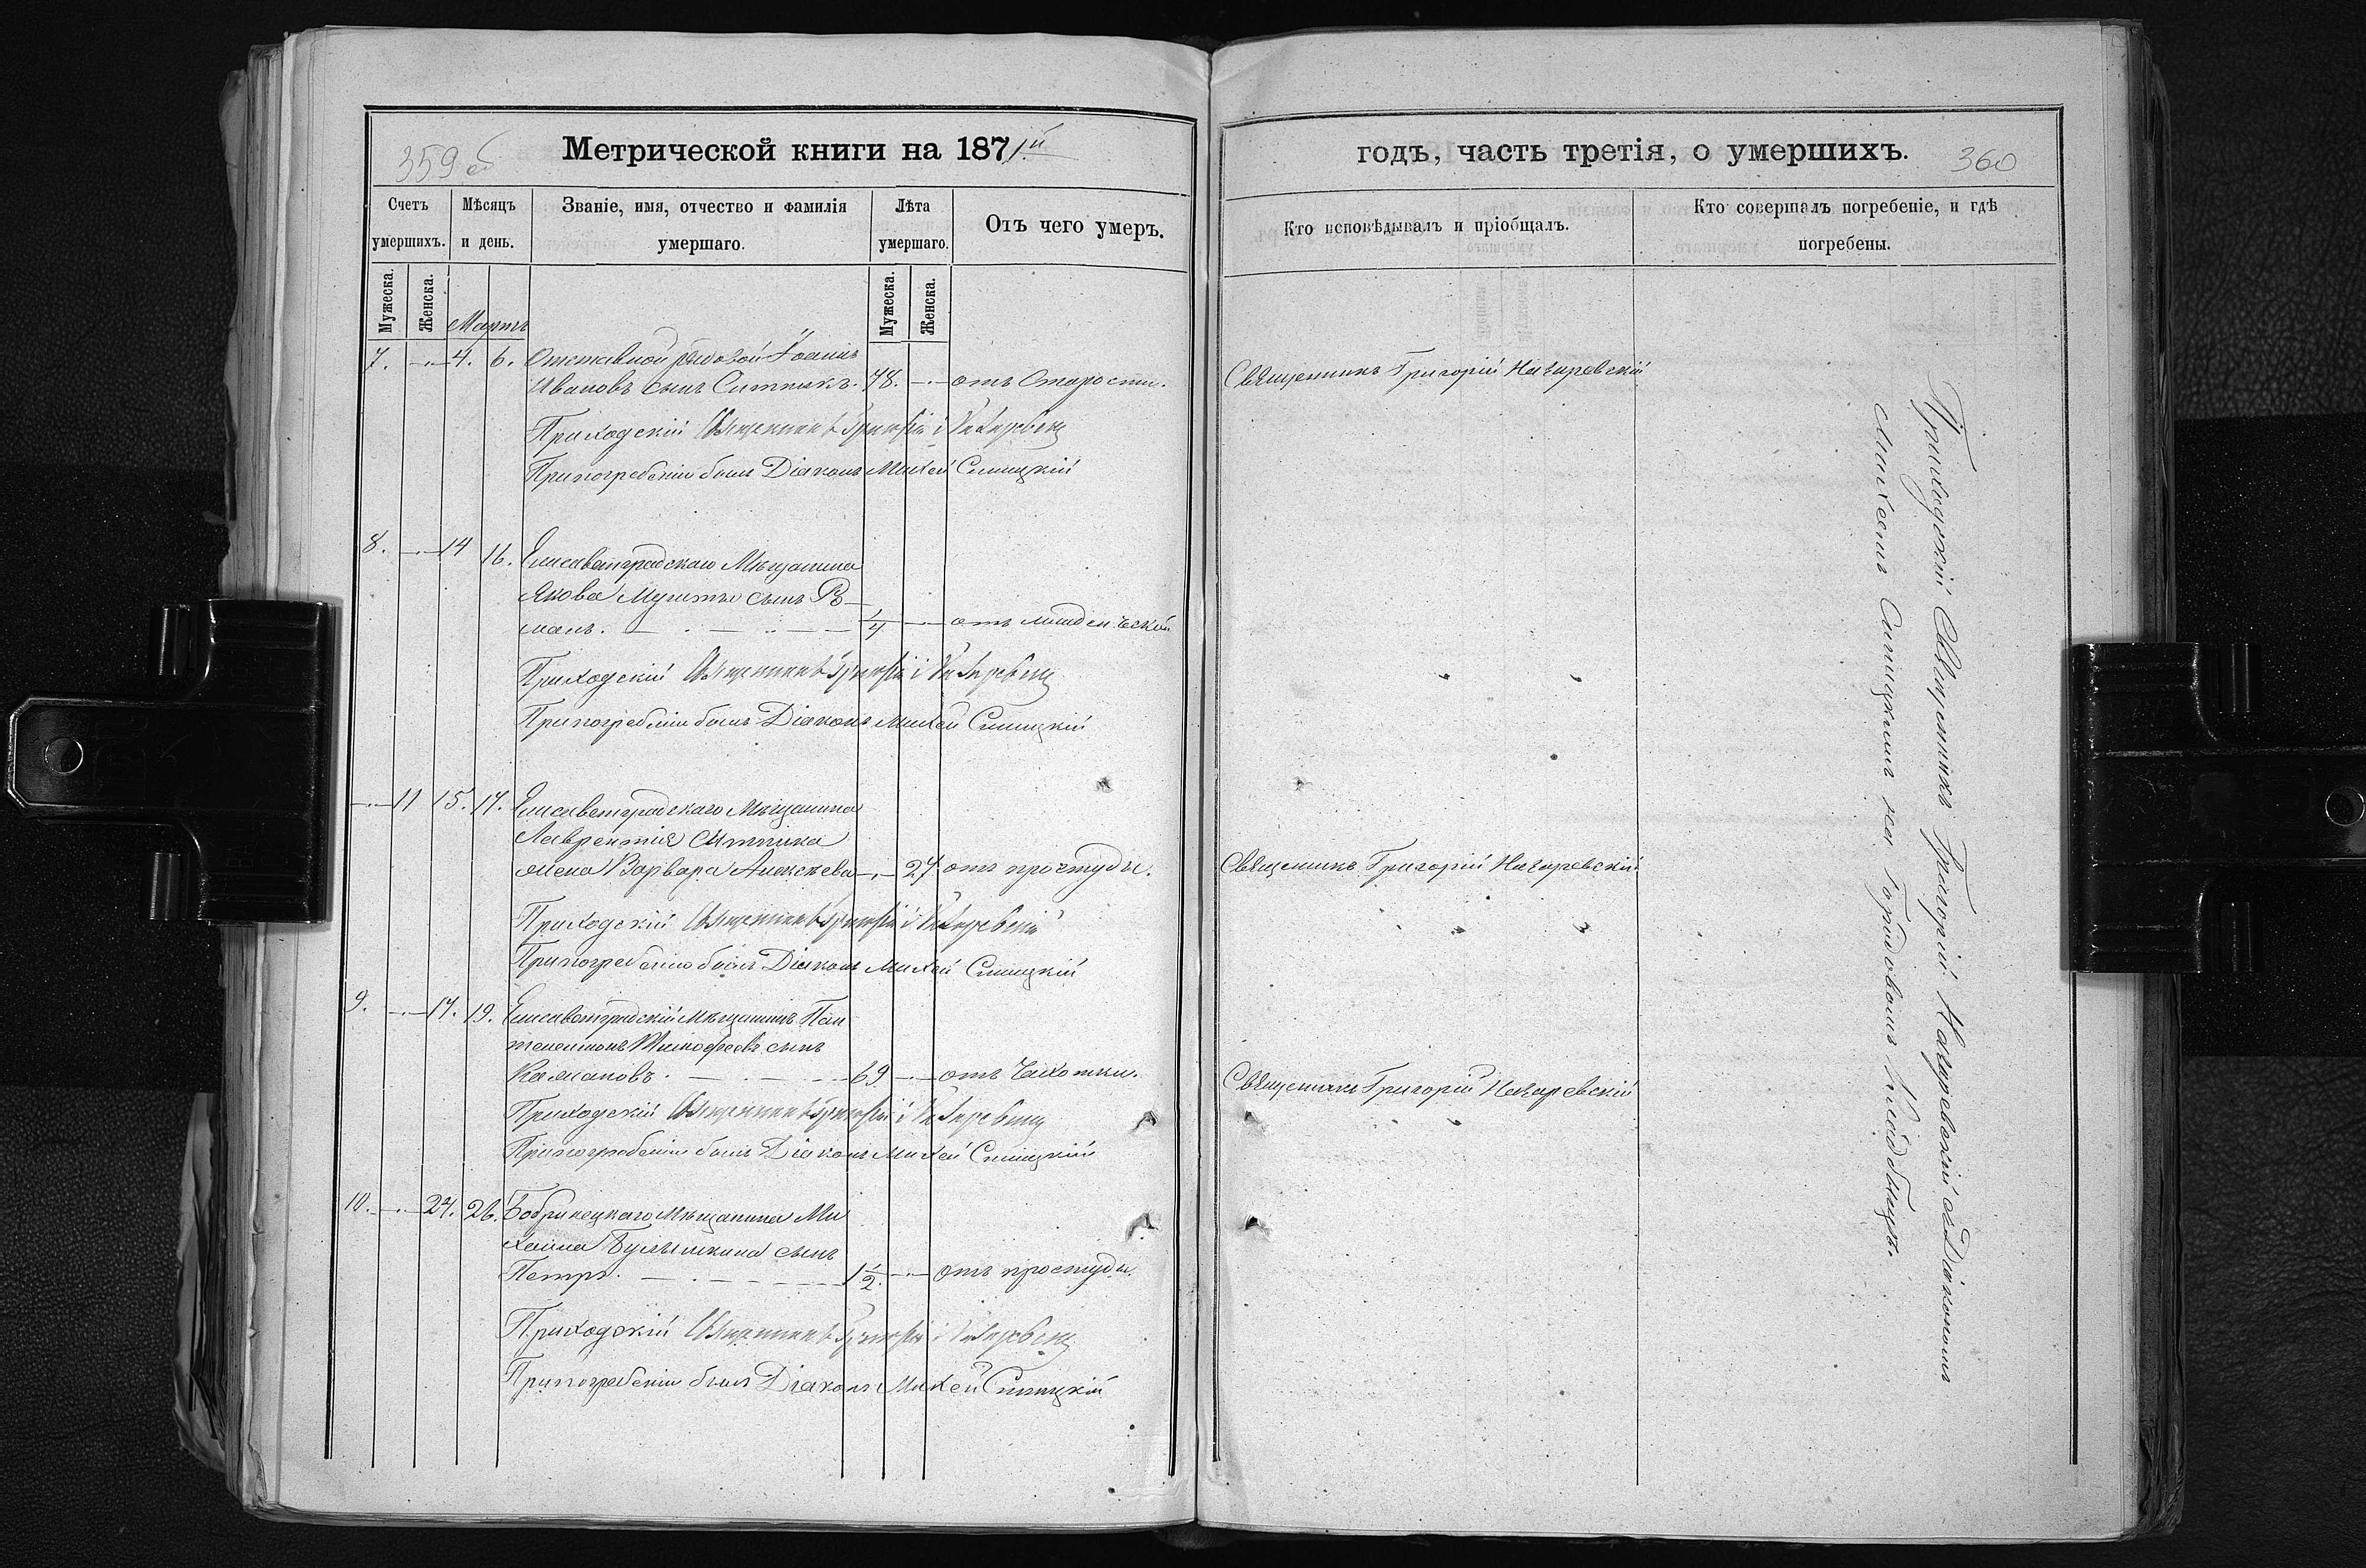 359 об
Метрической книги на 1871й
Счетъ умершихъ.
Мѣсяцъ и день.
Званіе, имя, отчество и фамилія умершаго.
Лѣта умершаго.
Отъ чего умеръ.
Мужеска.
Женска.
Мартъ
Мужеска.
Женска.
7. 4. 6. Отставной рядовой Іоаннъ
Ивановъ сынъ Ситникъ. 78. отъ старости.
Приходскій Священникъ Григорій
При погребеніи былъ Діаконъ Михей Синицкій
8. 14 16. Елисаветградскаго Мѣщанина
Якова сынъ Ро-
манъ. 1/4 отъ младенческой
Приходскій Священникъ Григорій
При погребеніи былъ Діаконъ Михей Синицкій
11 15. 17. Елисаветградскаго Мѣщанина
Лаврентія Ситника
жена Варвара Алексѣева 27 отъ простуды.
Приходскій Священникъ Григорій
При погребеніи былъ Діаконъ Михей Синицкій
9. 17. 19. Елисаветградскій Мѣщанинъ Пан
телеимонъ Тимофеевъ сынъ
69 отъ Чахотки.
Приходскій Священникъ Григорій
При погребеніи былъ Діаконъ Михей Синицкій
10. 24. 26. Бобринецкаго Мѣщанина Ми
хаила сынъ
Петръ. 1 1/2. отъ простуды.
Приходскій Священникъ Григорій
При погребеніи былъ Діаконъ Михей Синицкій
годъ, часть третія, о умершихъ.
360
Кто исповѣдывалъ и пріобщалъ.
Кто совершалъ погребеніе, и гдѣ погребены.
Священникъ Григорій
Священникъ Григорій
Священникъ Григорій
Приходскій Священникъ Григорій съ Діакономъ
Михеемъ Синицкимъ на Градовомъ Кладбищѣ.